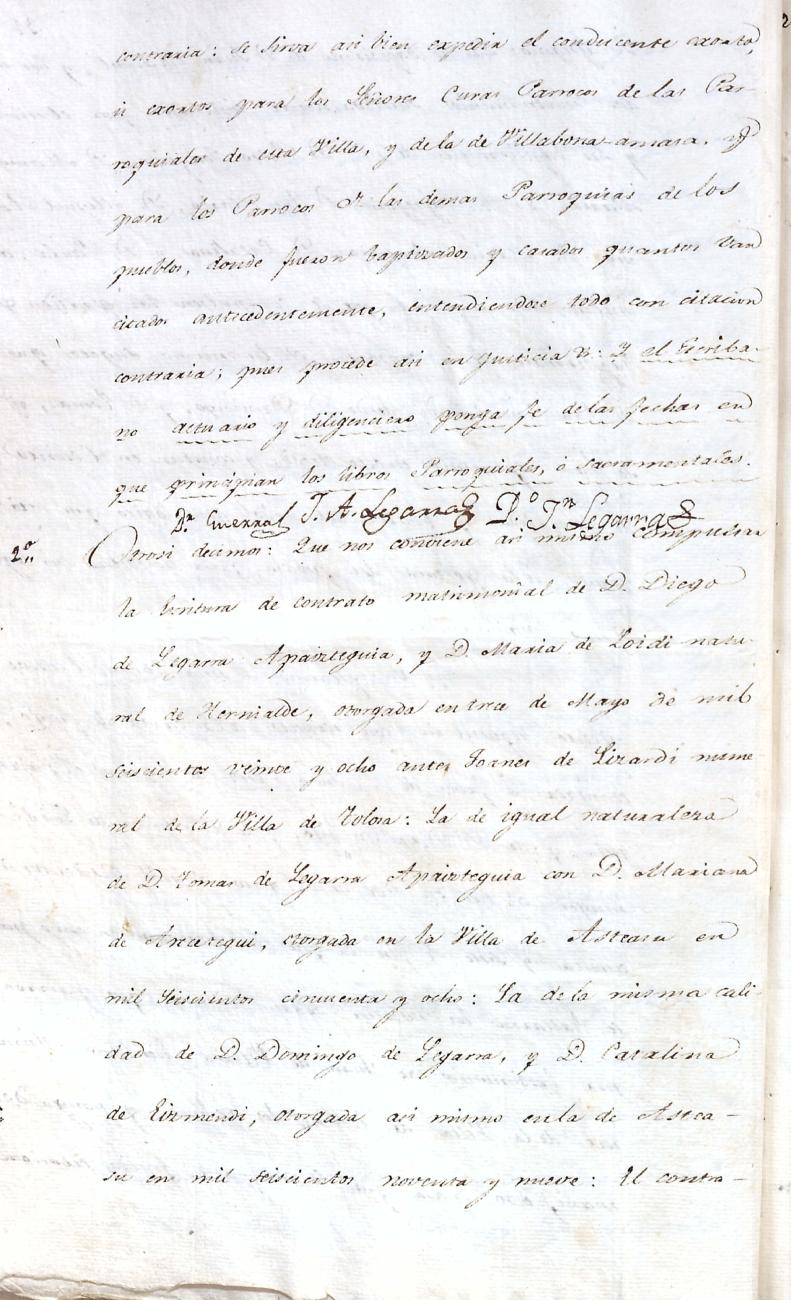 contraria: se sirva asi bien expedir el conducente exorto,
ú exortos para los Señores Curas Parrocos de las Par-
roquiales de esta Villa, y de la de Villabona-amasa, y
para los Parrocos de las demas Parroquias de los
pueblos, donde fueron baptizados y casados quantos van
citados antecedentemente, entendiendose todo con citacion
contraria; pues procede asi en Justicia &: Y el Escriba-
no actuario y diligenciero ponga fe de las fechas en
que principian los libros Parroquiales, ó sacramentales.
Dr. Guerra T. A. Legarra Do. Jn. Legarra
2o.. Otrosi decimos: Que nos conviene asi mismo compulsar
la Escritura de contrato matrimonial de D. Diego
de Legarra Apaizteguia, y D. Maria de Loidi natu-
ral de Hernialde, otorgada en trece de Mayo de mil
seiscientos veinte y ocho antes Joanes de Lizardi nume-
ral de la Villa de Tolosa: La de igual naturaleza
de D. Tomas de Legarra Apaizteguia con D. Mariana
de otorgada en la Villa de Asteasu en
mil seiscientos cincuenta y ocho: La de la misma cali-
dad de D. Domingo de Legarra, y D. Catalina
de Eizmendi, otorgada asi mismo en la de Astea-
su en mil seiscientos noventa y nueve: El contra-